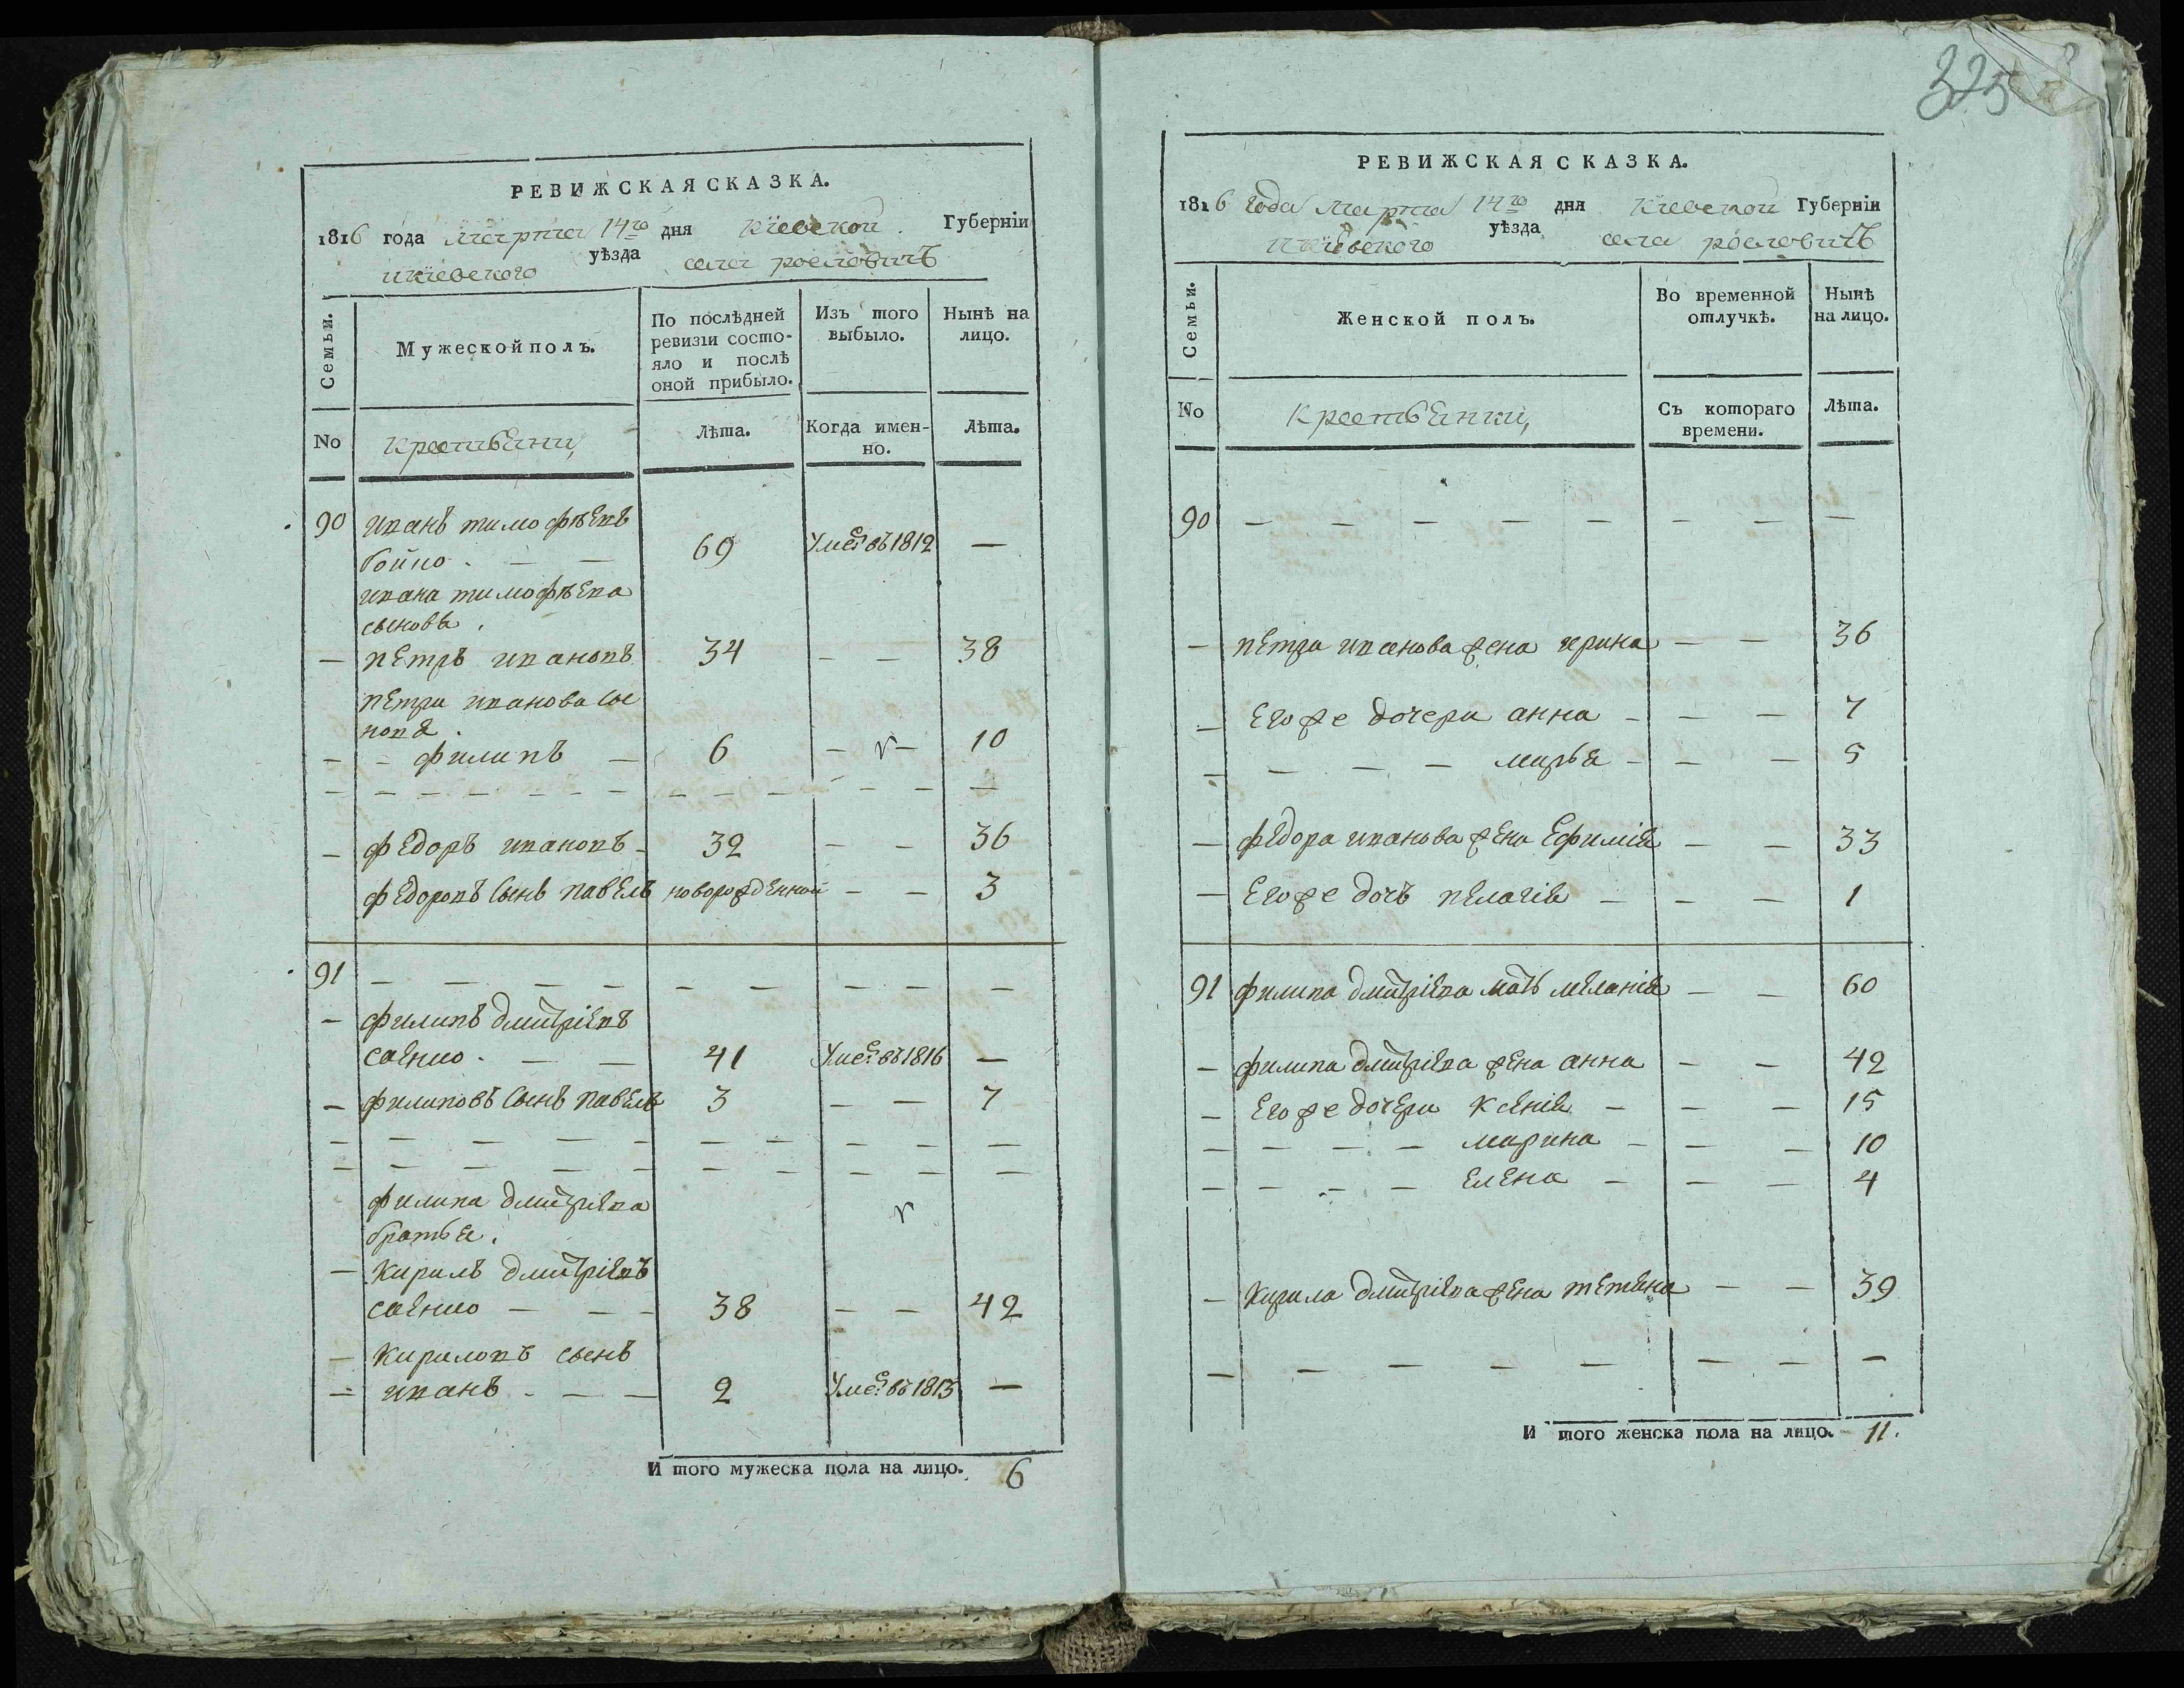 325
РЕВИЖСКАЯ СКАЗКА.
1816 года марта 14го дня Кіевской Губерніи
икіевского уѣзда села рославичъ
Семьи.
Мужеской полъ.
По послѣдней ревизіи состояло и послѣ оной прибыло.
Изъ того выбыло.
Нынѣ на лицо.
No
крестьяни,
Лѣта.
Когда именно.
Лѣта.
90 иванъ тимофѣевъ
бойко . — — 69 Умеръ въ 1812 —
ивана тимофѣева
сыновья .
— петръ ивановъ 34 — — 38
петра иванова сы
новья .
— - филипъ — 6 — — 10
— федоръ ивановъ - 32 — — 36
федоровъ сынъ павелъ новорожденной — — 3
91 — — — — — — — — —
— филипъ дмитріевъ
саенко . — — 41 Умеръ въ 1816 —
— филиповъ сынъ павелъ 3 — — 7
филипа дмитріева
братья .
— кирилъ дмитріевъ
саенко — — — 38 — — 42
— кириловъ сынъ
— иванъ - — — 2 Умеръ въ 1813 —
И того мужеска пола на лицо. 6
РЕВИЖСКАЯ СКАЗКА.
1816 года марта 14го дня Кіевской Губерніи
икіевского уѣзда села рославичъ
Семьи.
Женской полъ.
Во временной отлучкѣ.
Нынѣ на лицо.
No
крестьянки,
Съ котораго времени.
Лѣта.
90 — — — — — — — —
— петра иванова жена ирина — — 36
— его же дочери анна — — — 7
— — — — марья — — — 5
— федора иванова жена ефимія — — 33
— его же дочь пелагія — — — 1
91 филипа дмитріева мать меланія — — 60
— филипа дмитріева жена анна — — 42
— его же дочери ксенія — — — 15
— — — — марина — — — 10
— — — — елена — — — 4
— кирила дмитріева жена тетяна — — 39
— — — — — — — —
И того женска пола на лицо. 11.